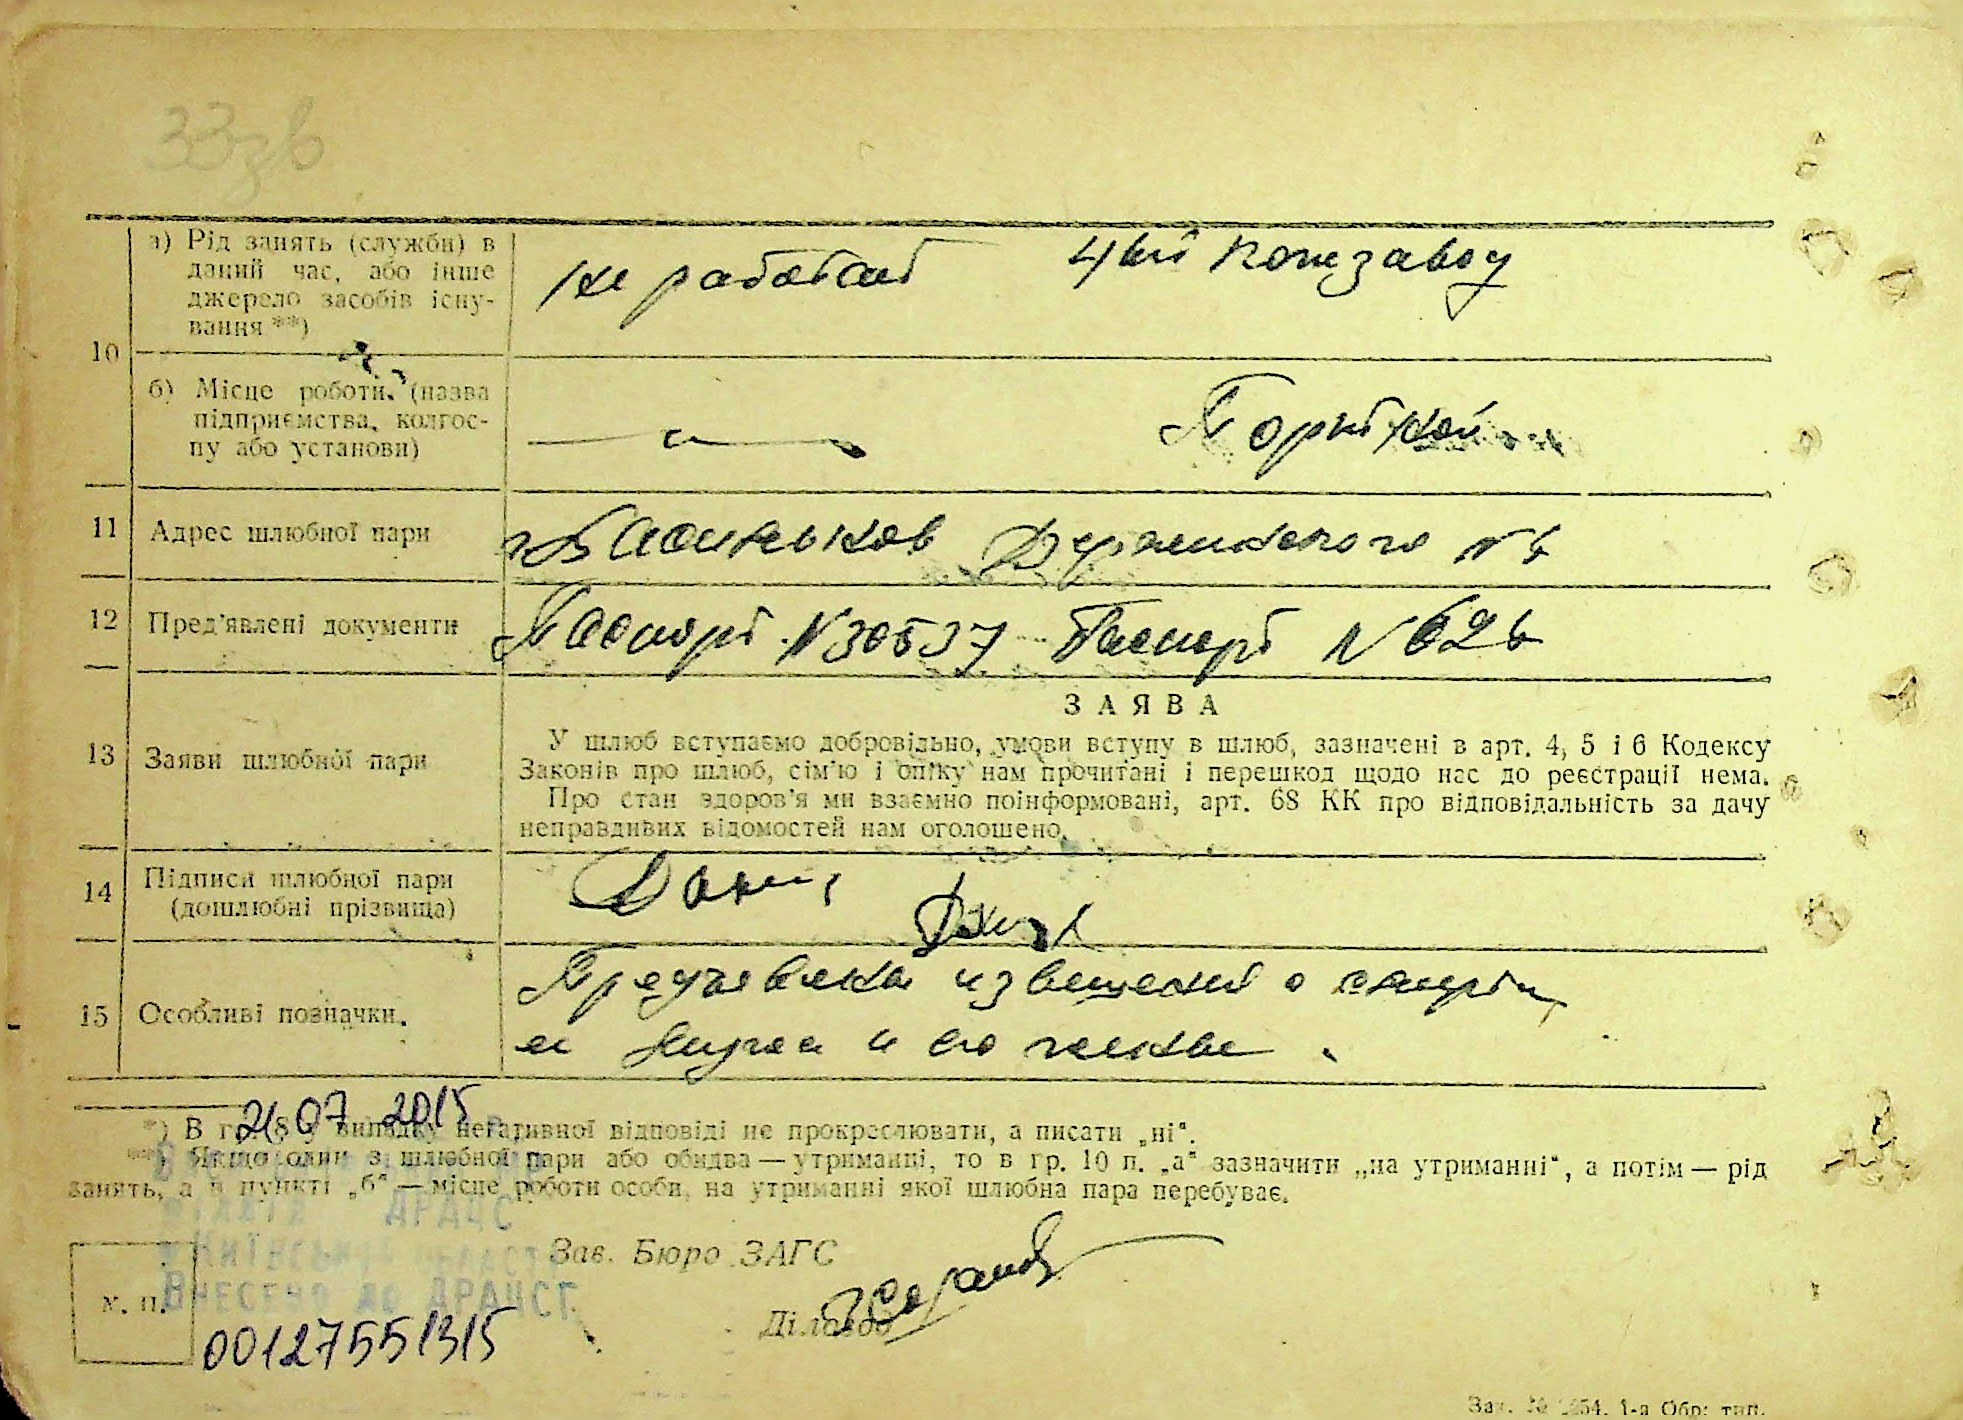 33зв
а) Рід занять (служби) в
даний час, або інше
джерело засобів існу-
вання **)
не работает 4ый Кожзавод
10
б) Місце роботи (назва
підприємства, колгос-
пу або установи)
11 Адрес шлюбної пари
г Васильков Дзержинского №
12 Пред'явлені документи
Паспорт №30537 Паспорт №
ЗАЯВА
13 Заяви шлюбної пари
У шлюб вступаємо добровільно, умови вступу в шлюб, зазначені в арт. 4, 5 і 6 Кодексу
Законів про шлюб, сім'ю і опіку нам прочитані і перешкод щодо нас до реєстрації нема.
Про стан здоров'я ми взаємно поінформовані, арт. 68 КК про відповідальність за дачу
неправдивих відомостей нам оголошено.
14 Підписи шлюбної пари
(дошлюбні прізвища)
15 Особливі позначки.
извещения о смерти
мужа и его
21 07 2015
*) В гр. 8 у випадку негативної відповіді не прокреслювати, а писати „ні“.
**) Якщо один з шлюбної пари або обидва — утриманці, то в гр. 10 п. „а“ зазначити „на утриманні“, а потім — рід
занять, а в пункті „б“ — місце роботи особи, на утриманні якої шлюбна пара перебуває.
ДРАЦС
Київській області
Зав. Бюро ЗАГС
М. П.
Внесено до ДРАЦСГ
Діловод
00127551315
Зак. № 1-а Обр. тип.